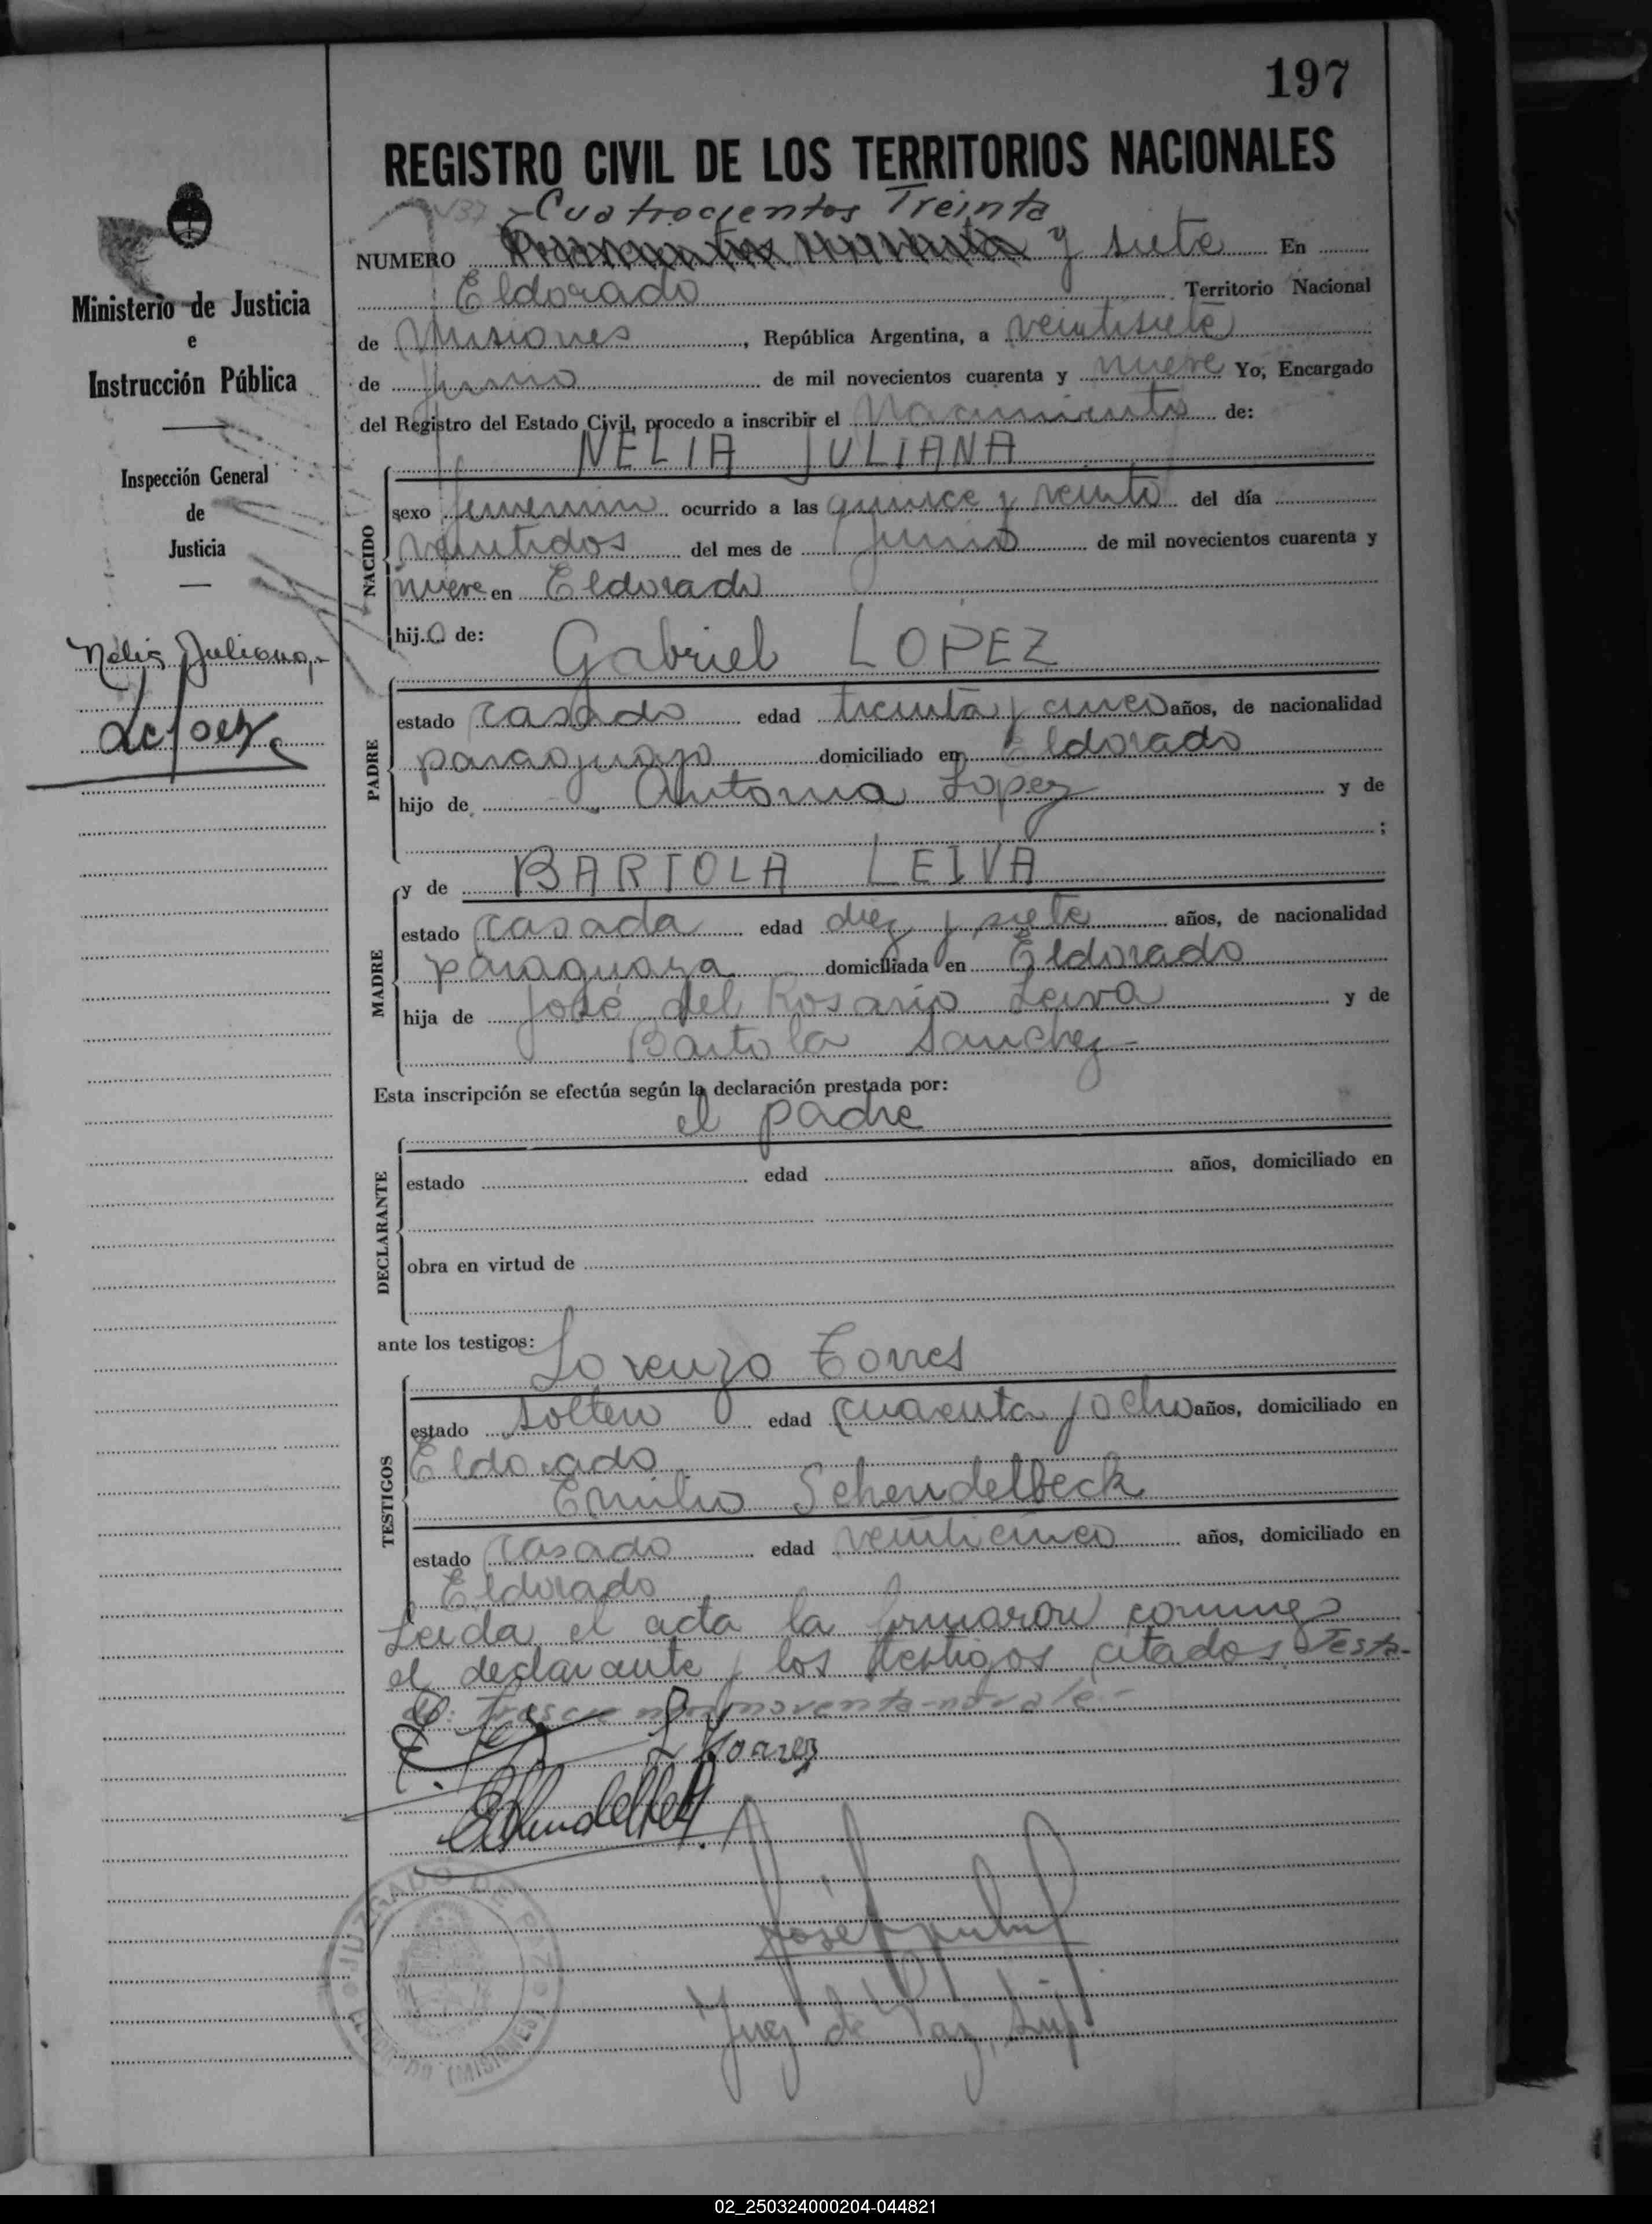 197
REGISTRO CIVIL DE LOS TERRITORIOS NACIONALES
437 Cuatrocientos Treinta
NUMERO y siete En
Eldorado Territorio Nacional
de Misiones, República Argentina, a veintisiete
de Junio de mil novecientos cuarenta y nueve Yo, Encargado
del Registro del Estado Civil, procedo a inscribir el Nacimiento de:
NELIA JULIANA
NACIDO
sexo femenino ocurrido a las quince y veinte del día
veintidos del mes de Junio de mil novecientos cuarenta y
nueve en Eldorado
hij.a de: Gabriel LOPEZ
PADRE
estado casado edad treinta y cinco años, de nacionalidad
paraguayo domiciliado en Eldorado
hijo de Antonia Lopez y de
;
MADRE
y de BARTOLA LEIVA
estado casada edad diez y siete años, de nacionalidad
paraguaya domiciliada en Eldorado
hija de José del Rosario Leiva y de
Bartola Sanchez
Esta inscripción se efectúa según la declaración prestada por:
el padre
DECLARANTE
estado edad años, domiciliado en
obra en virtud de
ante los testigos: Lorenzo Torres
TESTIGOS
estado soltero edad cuarenta y ocho años, domiciliado en
Eldorado
Emilio Schendelbeck
estado casado edad veinticinco años, domiciliado en
Eldorado
Leida el acta la firmaron conmigo
el declarante y los testigos citados. Testa-
noventa-no vale-
Juez de Paz Sup.
Ministerio de Justicia
e
Instrucción Pública
Inspección General
de
Justicia
Nelia Juliana
Lopez
JUZGADO DE PAZ
ELDORADO (MISIONES)
02_250324000204-044821